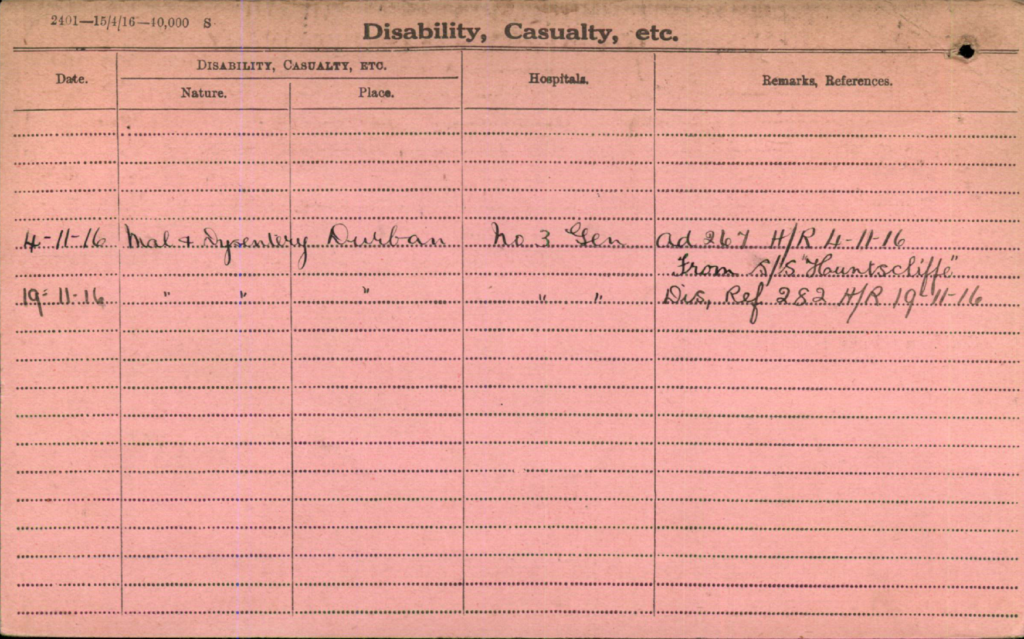 2401—15/4/16—40,000 S
Disability, Casualty, etc.
Date. Disability, Casualty, etc. Hospitals. Remarks, References.
Nature. Place.
4-11-16 Mal & Dysentery Durban No 3 Gen Ad 267 H/R 4-11-16
From S/S "Huntscliffe"
19-11-16 " " " " " Dis, Ref 282 H/R 19-11-16